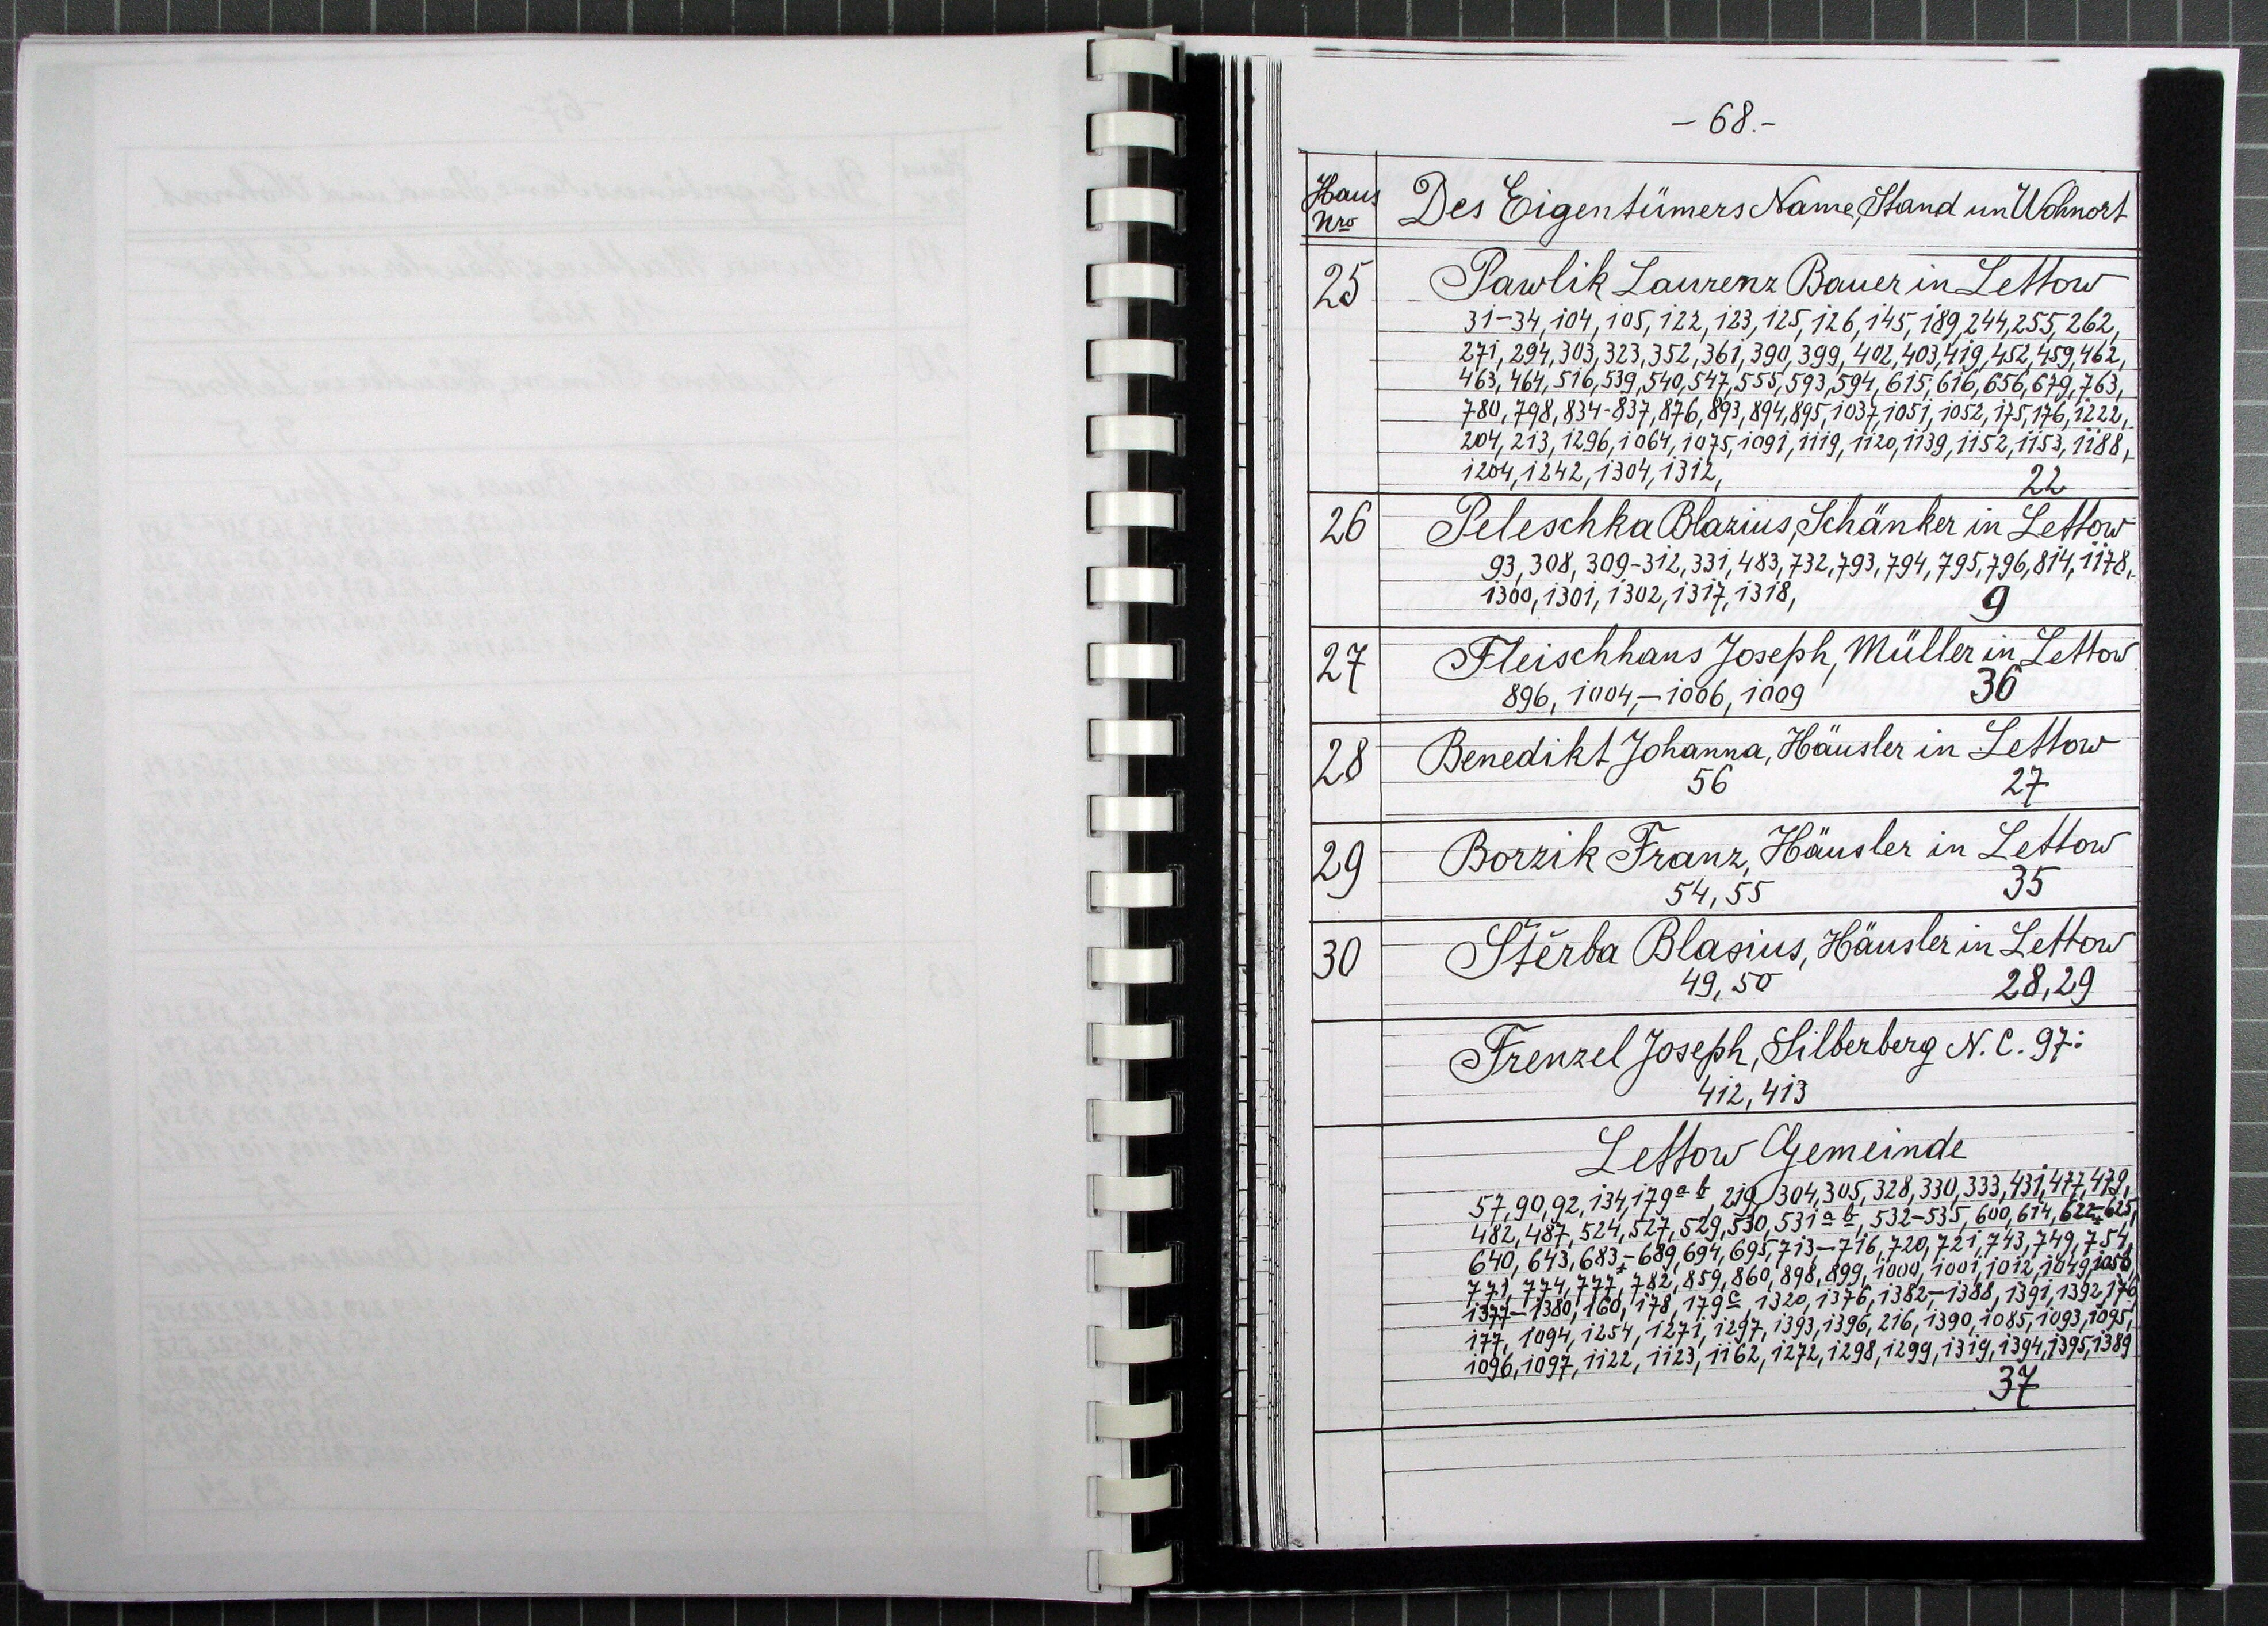 – 68.–
Haus Nro Des Eigentümers Name, Stand un Wohnort
25 Pawlik Laurenz Bauer in Lettow
31–34, 104, 105, 122, 123, 125, 126, 145, 189, 244, 255, 262,
271, 294, 303, 323, 352, 361, 390, 399, 402, 403, 419, 452, 459, 462,
463, 464, 516, 539, 540, 547, 555, 593, 594, 615, 616, 656, 679, 763,
780, 798, 834-837, 876, 893, 894, 895, 1037, 1051, 1052, 175, 176, 1222,
204, 213, 1296, 1064, 1075, 1091, 1119, 1120, 1139, 1152, 1153, 1188,
1204, 1242, 1304, 1312, 22
26 Peleschka Blazius, Schänker in Lettow
93, 308, 309-312, 331, 483, 732, 793, 794, 795, 796, 814, 1178,
1300, 1301, 1302, 1317, 1318, 9
27 Fleischhans Joseph, Müller in Lettow
896, 1004,–1006, 1009 36
28 Benedikt Johanna, Häusler in Lettow
56 27
29 Borzik Franz, Häusler in Lettow
54, 55 35
30 Štěrba Blasius, Häusler in Lettow
49, 50 28, 29
Frenzel Joseph, Silberberg N. C. 97:
412, 413
Lettow Gemeinde
57, 90, 92, 134, 179 a b, 219, 304, 305, 328, 330, 333, 431, 477, 479,
482, 487, 524, 527, 529, 530, 531 a b, 532–535, 600, 614, 622–625,
640, 643, 683–689, 694, 695, 713–716, 720, 721, 743, 749, 754,
771, 774, 777, 782, 859, 860, 898, 899, 1000, 1001, 1012, 1049,
1377–1380, 160, 178, 179 c, 1320, 1376, 1382–1388, 1391, 1392,
177, 1094, 1254, 1271, 1297, 1393, 1396, 216, 1390, 1085, 1093, 1095,
1096, 1097, 1122, 1123, 1162, 1272, 1298, 1299, 1319, 1394, 1395, 1389
37